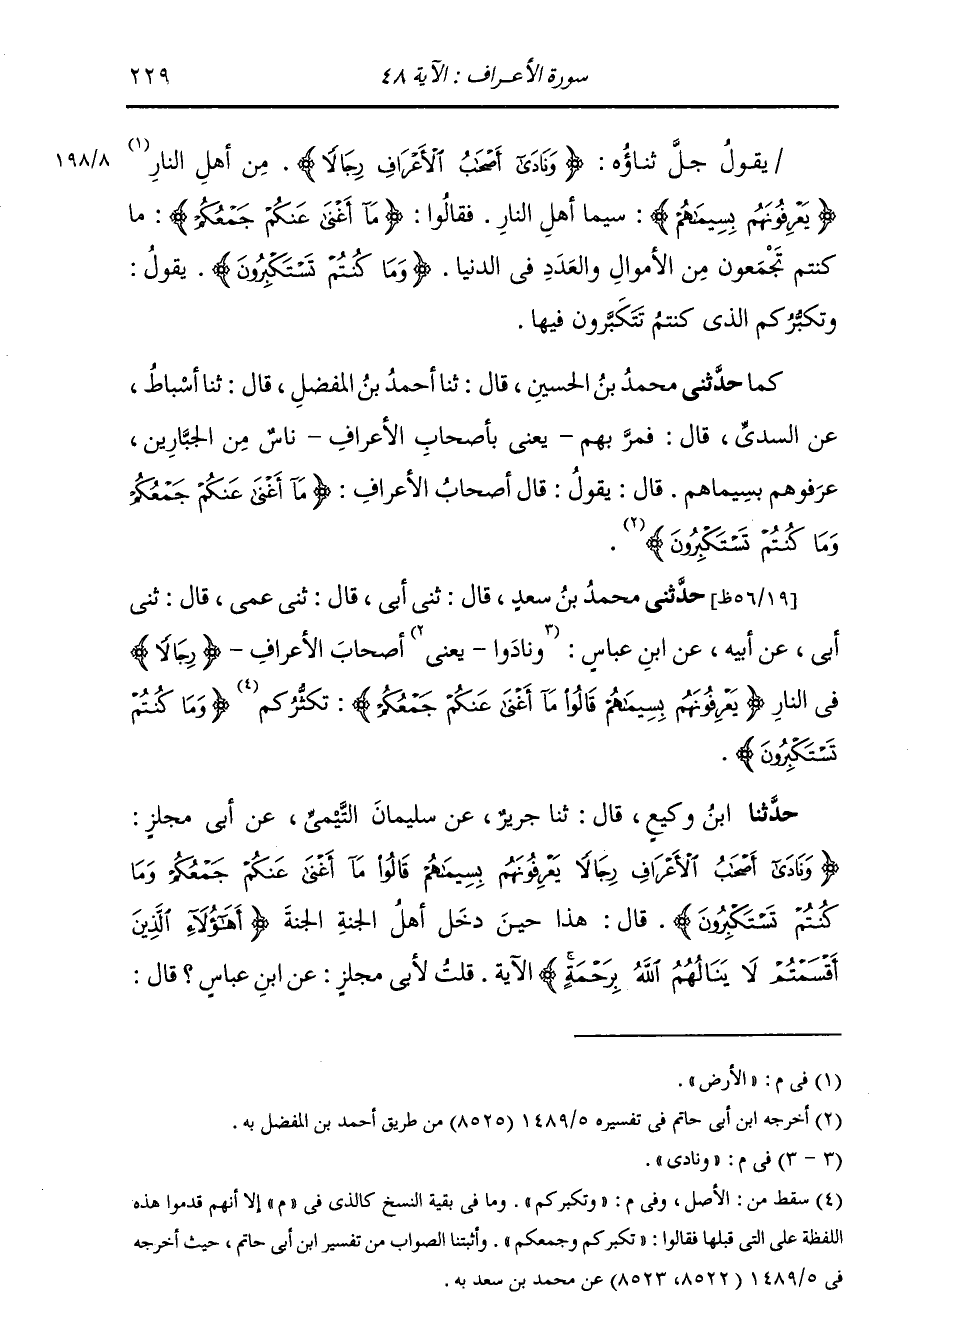 سورة الأعراف : الآية ٤٨
٢٢٩
/ يقولُ جلَّ ثناؤُه : ﴿ وَنَادَىٰٓ أَصْحَٰبُ ٱلْأَعْرَافِ رِجَالًا ﴾ . مِن أهلِ النارِ(١)
١٩٨/٨
﴿ يَعْرِفُونَهُم بِسِيمَىٰهُمْ ﴾ : سيما أهلِ النارِ . فقالُوا : ﴿ مَآ أَغْنَىٰ عَنكُمْ جَمْعُكُمْ ﴾ : ما
كنتم تَجْمَعون مِن الأموالِ والعَدَدِ فى الدنيا . ﴿ وَمَا كُنتُمْ تَسْتَكْبِرُونَ ﴾ . يقولُ :
وتكبُّرُكم الذى كنتمُ تَتَكَبَّرون فيها .
كما حدَّثنى محمدُ بنُ الحسينِ ، قال : ثنا أحمدُ بنُ المفضلِ ، قال : ثنا أسْباطُ ،
عن السدىِّ ، قال : فمرَّ بهم – يعنى بأصحابِ الأعرافِ – ناسٌ مِن الجبَّارين ،
عرَفوهم بسِيماهم . قال : يقولُ : قال أصحابُ الأعرافِ : ﴿ مَآ أَغْنَىٰ عَنكُمْ جَمْعُكُمْ
وَمَا كُنتُمْ تَسْتَكْبِرُونَ ﴾(٢) .
[٥٦/١٩ظ] حدَّثنى محمدُ بنُ سعدٍ ، قال : ثنى أبى ، قال : ثنى عمى ، قال : ثنى
أبى ، عن أبيه ، عن ابنِ عباسٍ : (٣ ونادَوا – يعنى ٣) أصحابَ الأعرافِ – ﴿ رِجَالًا ﴾
فى النارِ ﴿ يَعْرِفُونَهُم بِسِيمَىٰهُمْ قَالُوا۟ مَآ أَغْنَىٰ عَنكُمْ جَمْعُكُمْ ﴾ : تكثُّرُكم(٤) ﴿ وَمَا كُنتُمْ
تَسْتَكْبِرُونَ ﴾ .
حدَّثنا ابنُ وكيعٍ ، قال : ثنا جريرٌ ، عن سليمانَ التَّيْمىِّ ، عن أبى مجلزٍ :
﴿ وَنَادَىٰٓ أَصْحَٰبُ ٱلْأَعْرَافِ رِجَالًا يَعْرِفُونَهُم بِسِيمَىٰهُمْ قَالُوا۟ مَآ أَغْنَىٰ عَنكُمْ جَمْعُكُمْ وَمَا
كُنتُمْ تَسْتَكْبِرُونَ ﴾ . قال : هذا حينَ دخَل أهلُ الجنةِ الجنةَ ﴿ أَهَٰٓؤُلَآءِ ٱلَّذِينَ
أَقْسَمْتُمْ لَا يَنَالُهُمُ ٱللَّهُ بِرَحْمَةٍۚ ﴾ الآية . قلتُ لأبى مجلزٍ : عن ابنِ عباسٍ ؟ قال :
(١) فى م : « الأرض » .
(٢) أخرجه ابن أبى حاتم فى تفسيره ١٤٨٩/٥ (٨٥٢٥) من طريق أحمد بن المفضل به .
(٣ – ٣) فى م : « ونادى » .
(٤) سقط من : الأصل ، وفى م : « وتكبركم » . وما فى بقية النسخ كالذى فى « م » إلا أنهم قدموا هذه
اللفظة على التى قبلها فقالوا : « تكبركم وجمعكم » . وأثبتنا الصواب من تفسير ابن أبى حاتم ، حيث أخرجه
فى ١٤٨٩/٥ ( ٨٥٢٢، ٨٥٢٣) عن محمد بن سعد به .